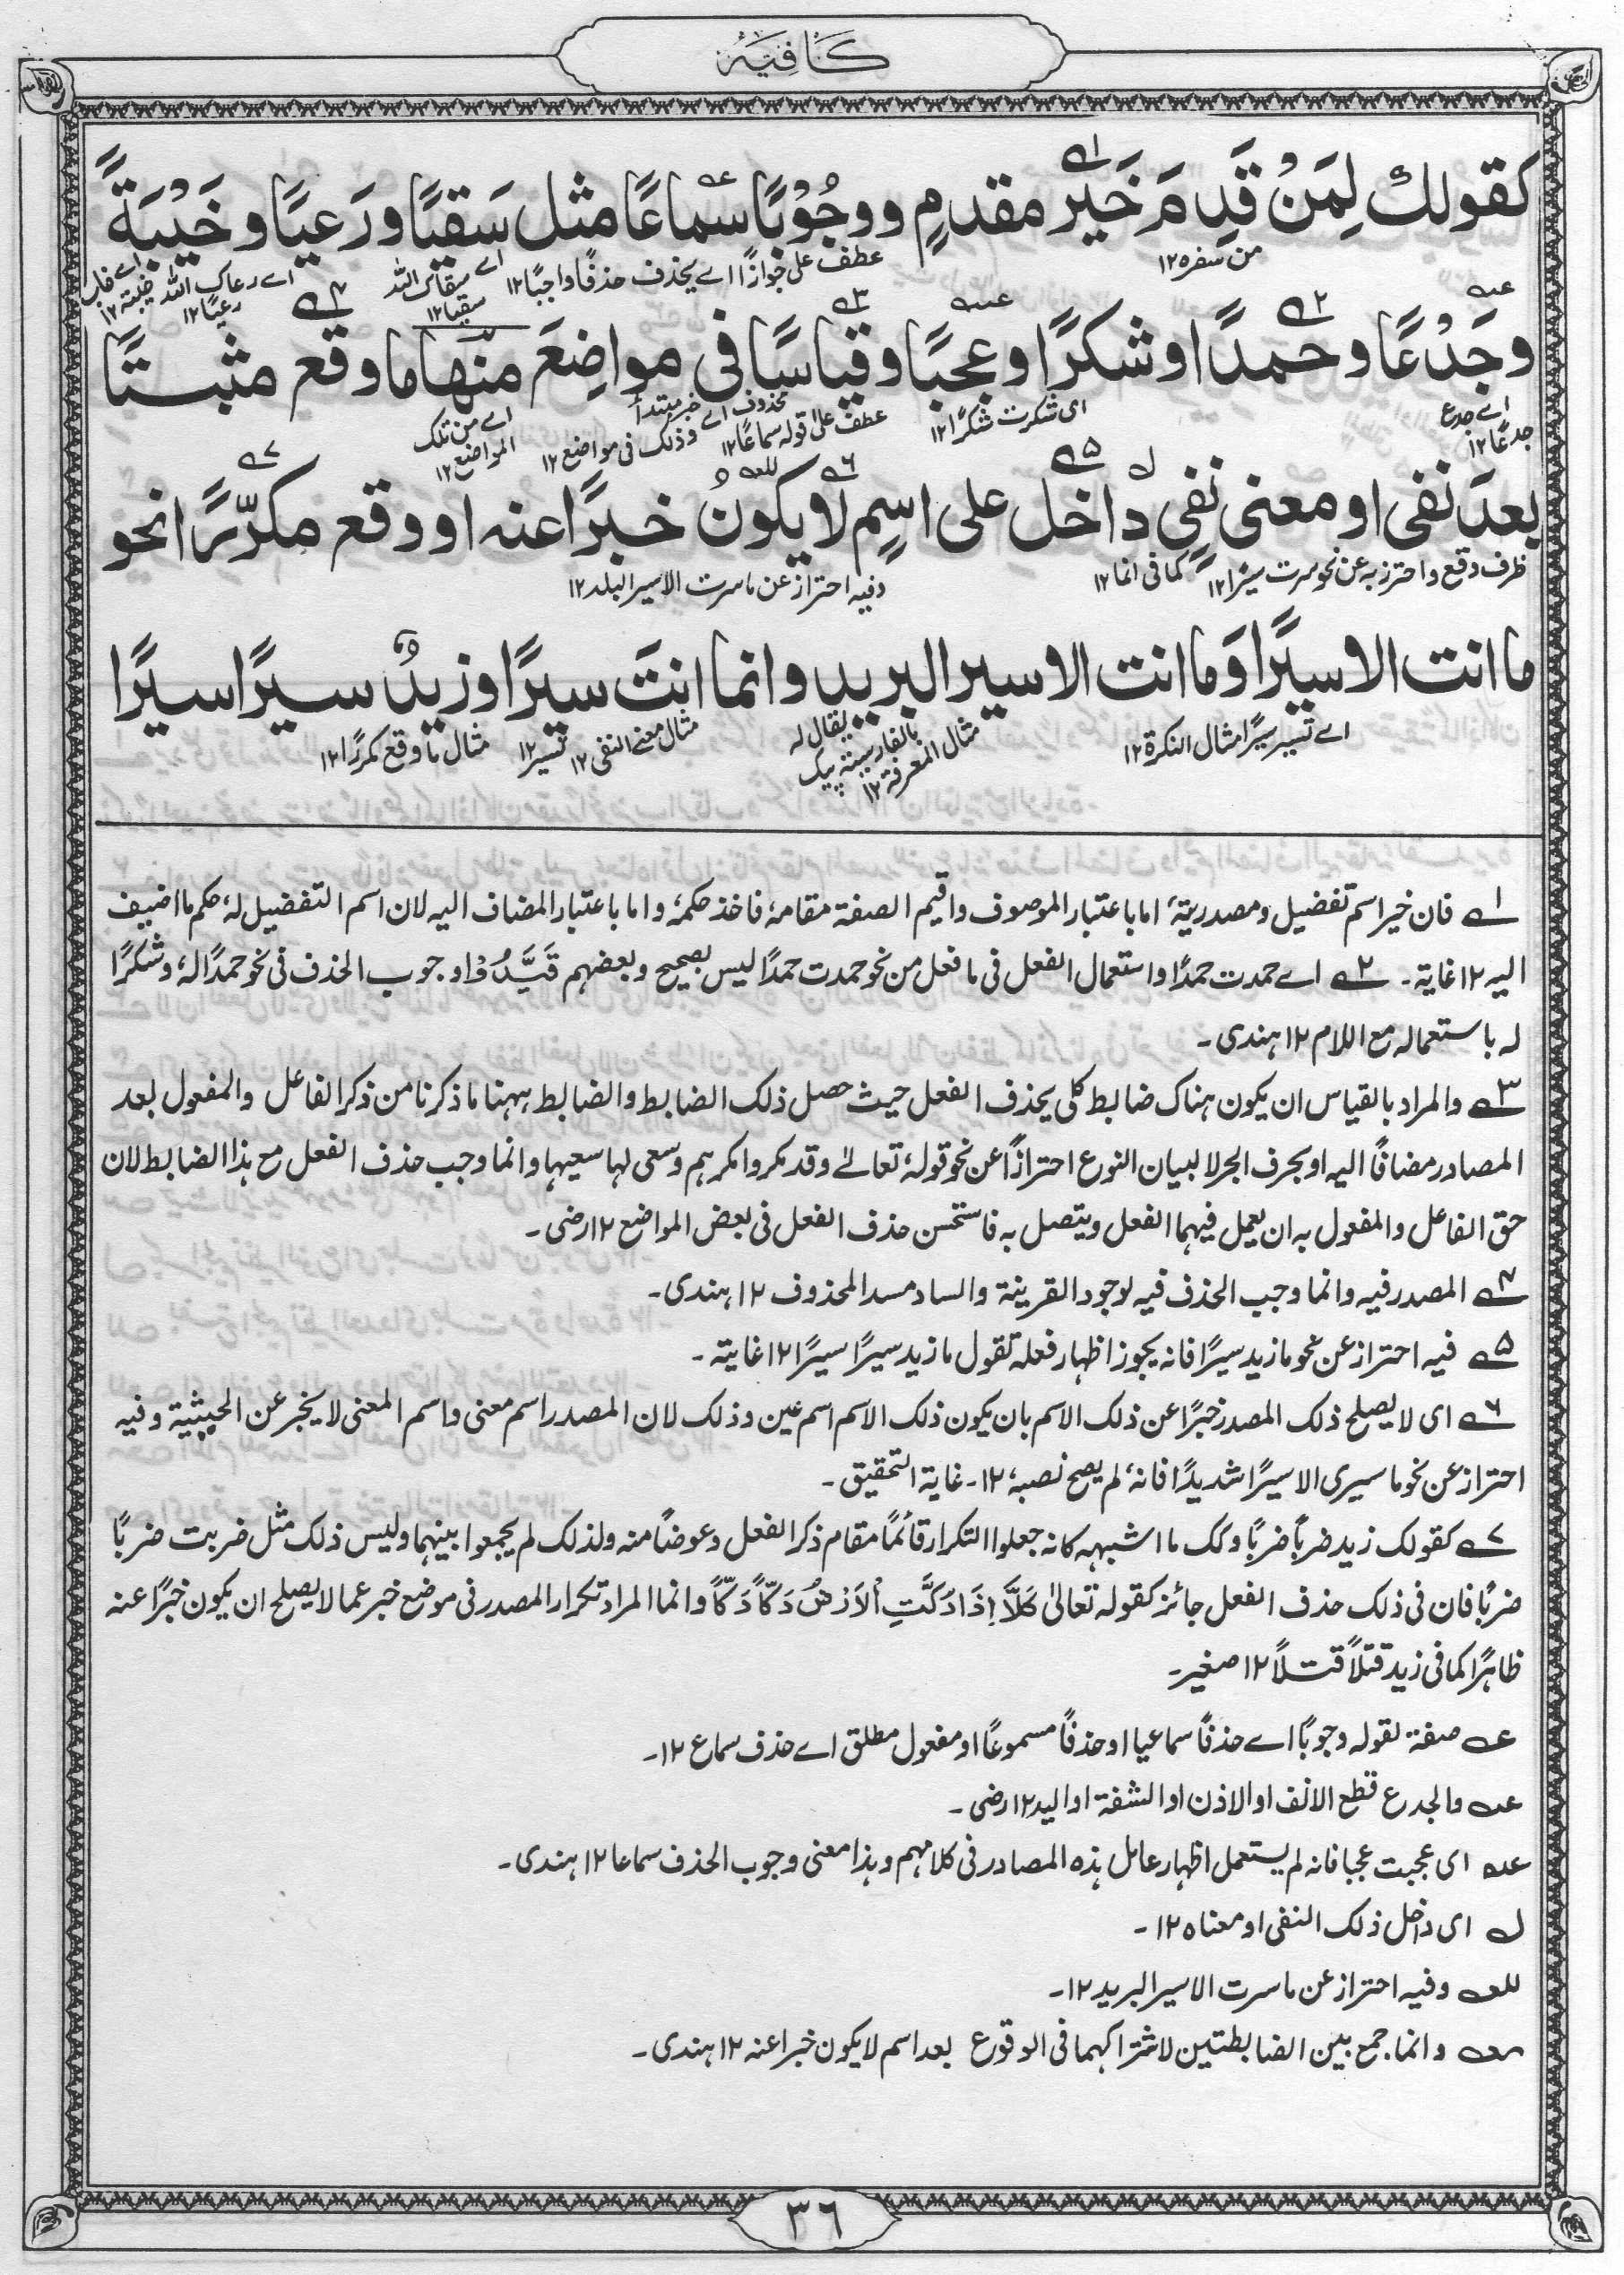 كَافِيَة
كقولك لِمَنْ قَدِمَ خَيْر مقدمٍ ووجُوْبًا سماعًا مثل سَقيًا ورَعيًا وخَيْبَةً
من سفره ١٢
عطف على جوازًا اے يحذف حذفًا واجبًا ١٢
اے سقاك الله سقيا ١٢
اے رعاك الله رعيًا ١٢
اے خاب خيبة ١٢
وجَدْعًا وحمدًا وشكرًا وعجبًا وقياسًا فى مواضِعَ منها ما وقع مثبتًا
اے جدع جدعًا ١٢
اى شكرت شكرًا ١٢
عطف على قوله سماعًا ١٢
خبر مبتدأ محذوف اے وذلك فى مواضع ١٢
اے من تلك المواضع ١٢
بعدَ نفى او معنى نفىٍ داخل على اسمٍ لا يكونُ خبرًا عنه او وقع مكرّرًا نحو
ظرف وقع واحترز به عن نحو سرت سيرًا ١٢
كما فى انما ١٢
وفيه احتراز عن ما سرت الا سير البلد ١٢
ما انت الا سيرًا وَما انت الا سير البريد وانما انتَ سيرًا وزيدٌ سيرًا سيرًا
اے تسير سيرًا مثال النكرة ١٢
يقال له بالفارسية پيک
مثال المعرفة ١٢
مثال معنے النفى ١٢
تسير ١٢
مثال ما وقع مكررًا ١٢
١ے فان خيرا اسم تفضيل ومصدريتهٗ اما باعتبار الموصوف واقيم الصفة مقامهٗ فاخذ حكمهٗ واما باعتبار المضاف اليه لان اسم التفضيل لهٗ حكم ما اضيف
اليه ١٢ غاية۔ ٢ے اے حمدت حمدًا واستعمال الفعل فى ما فعل من نحو حمدت حمدًا ليس بصحيح وبعضهم قَيَّدُوْا وجوب الحذف فى نحو حمدًا لهٗ وشكرًا
له باستعماله مع اللام ١٢ هندى۔
٣ے والمراد بالقياس ان يكون هناك ضابط كلى يحذف الفعل حيث حصل ذلك الضابط والضابط ههنا ما ذكرنا من ذكر الفاعل والمفعول بعد
المصادر مضافًا اليه او بحرف الجر لا لبيان النوع احترازًا عن نحو قولهٗ تعالے وقد مكروا مكرهم وسعى لها سعيها وانما وجب حذف الفعل مع هذا الضابط لان
حق الفاعل والمفعول به ان يعمل فيهما الفعل ويتصل به فاستحسن حذف الفعل فى بعض المواضع ١٢ رضى۔
٤ے المصدر فيه وانما وجب الحذف فيه لوجود القرينة والساد مسد المحذوف ١٢ هندى۔
٥ے فيه احتراز عن نحو ما زيد سيرًا فانه يجوز اظهار فعله تقول ما زيد سيرًا سيرًا ١٢ غايته۔
٦ے اى لا يصلح ذلك المصدر خبرًا عن ذلك الاسم بان يكون ذلك الاسم اسم عين وذلك لان المصدر اسم معنى واسم المعنى لا يخبر عن الحيثية وفيه
احتراز عن نحو ما سيرى الا سيرًا شديدًا فانهٗ لم يصح نصبهٗ ١٢۔ غاية التحقيق۔
٧ے كقولك زيد ضربًا ضربًا وكك ما اشبهه كانه جعلوا التكرار قائمًا مقام ذكر الفعل وعوضًا منه ولذلك لم يجمعوا بينهما وليس ذلك مثل ضربت ضربًا
ضربًا فان فى ذلك حذف الفعل جائز كقوله تعالىٰ كَلَّا إِذَا دُكَّتِ الْاَرْضُ دَكًّا دَكًّا وانما المراد تكرار المصدر فى موضع خبر عما لا يصلح ان يكون خبرًا عنه
ظاهرًا كما فى زيد قتلاً قتلاً ١٢ صغير۔
عے صفة لقوله وجوبًا اے حذفًا سماعيا او حذفًا مسموعًا او مفعول مطلق اے حذف سماع ١٢۔
عے والجدع قطع الانف او الاذن او الشفة او اليد ١٢ رضى۔
عے اى عجبت عجبا فانه لم يستعمل اظهار عامل هذه المصادر فى كلامهم وهذا معنى وجوب الحذف سماعا ١٢ هندى۔
ل اى داخل ذلك النفى او معناه ١٢۔
للعے وفيه احتراز عن ما سرت الا سير البريد ١٢۔
وانما جمع بين الضابطتين لاشتراكهما فى الوقوع بعد اسم لا يكون خبرا عنه ١٢ هندى۔
٣٦